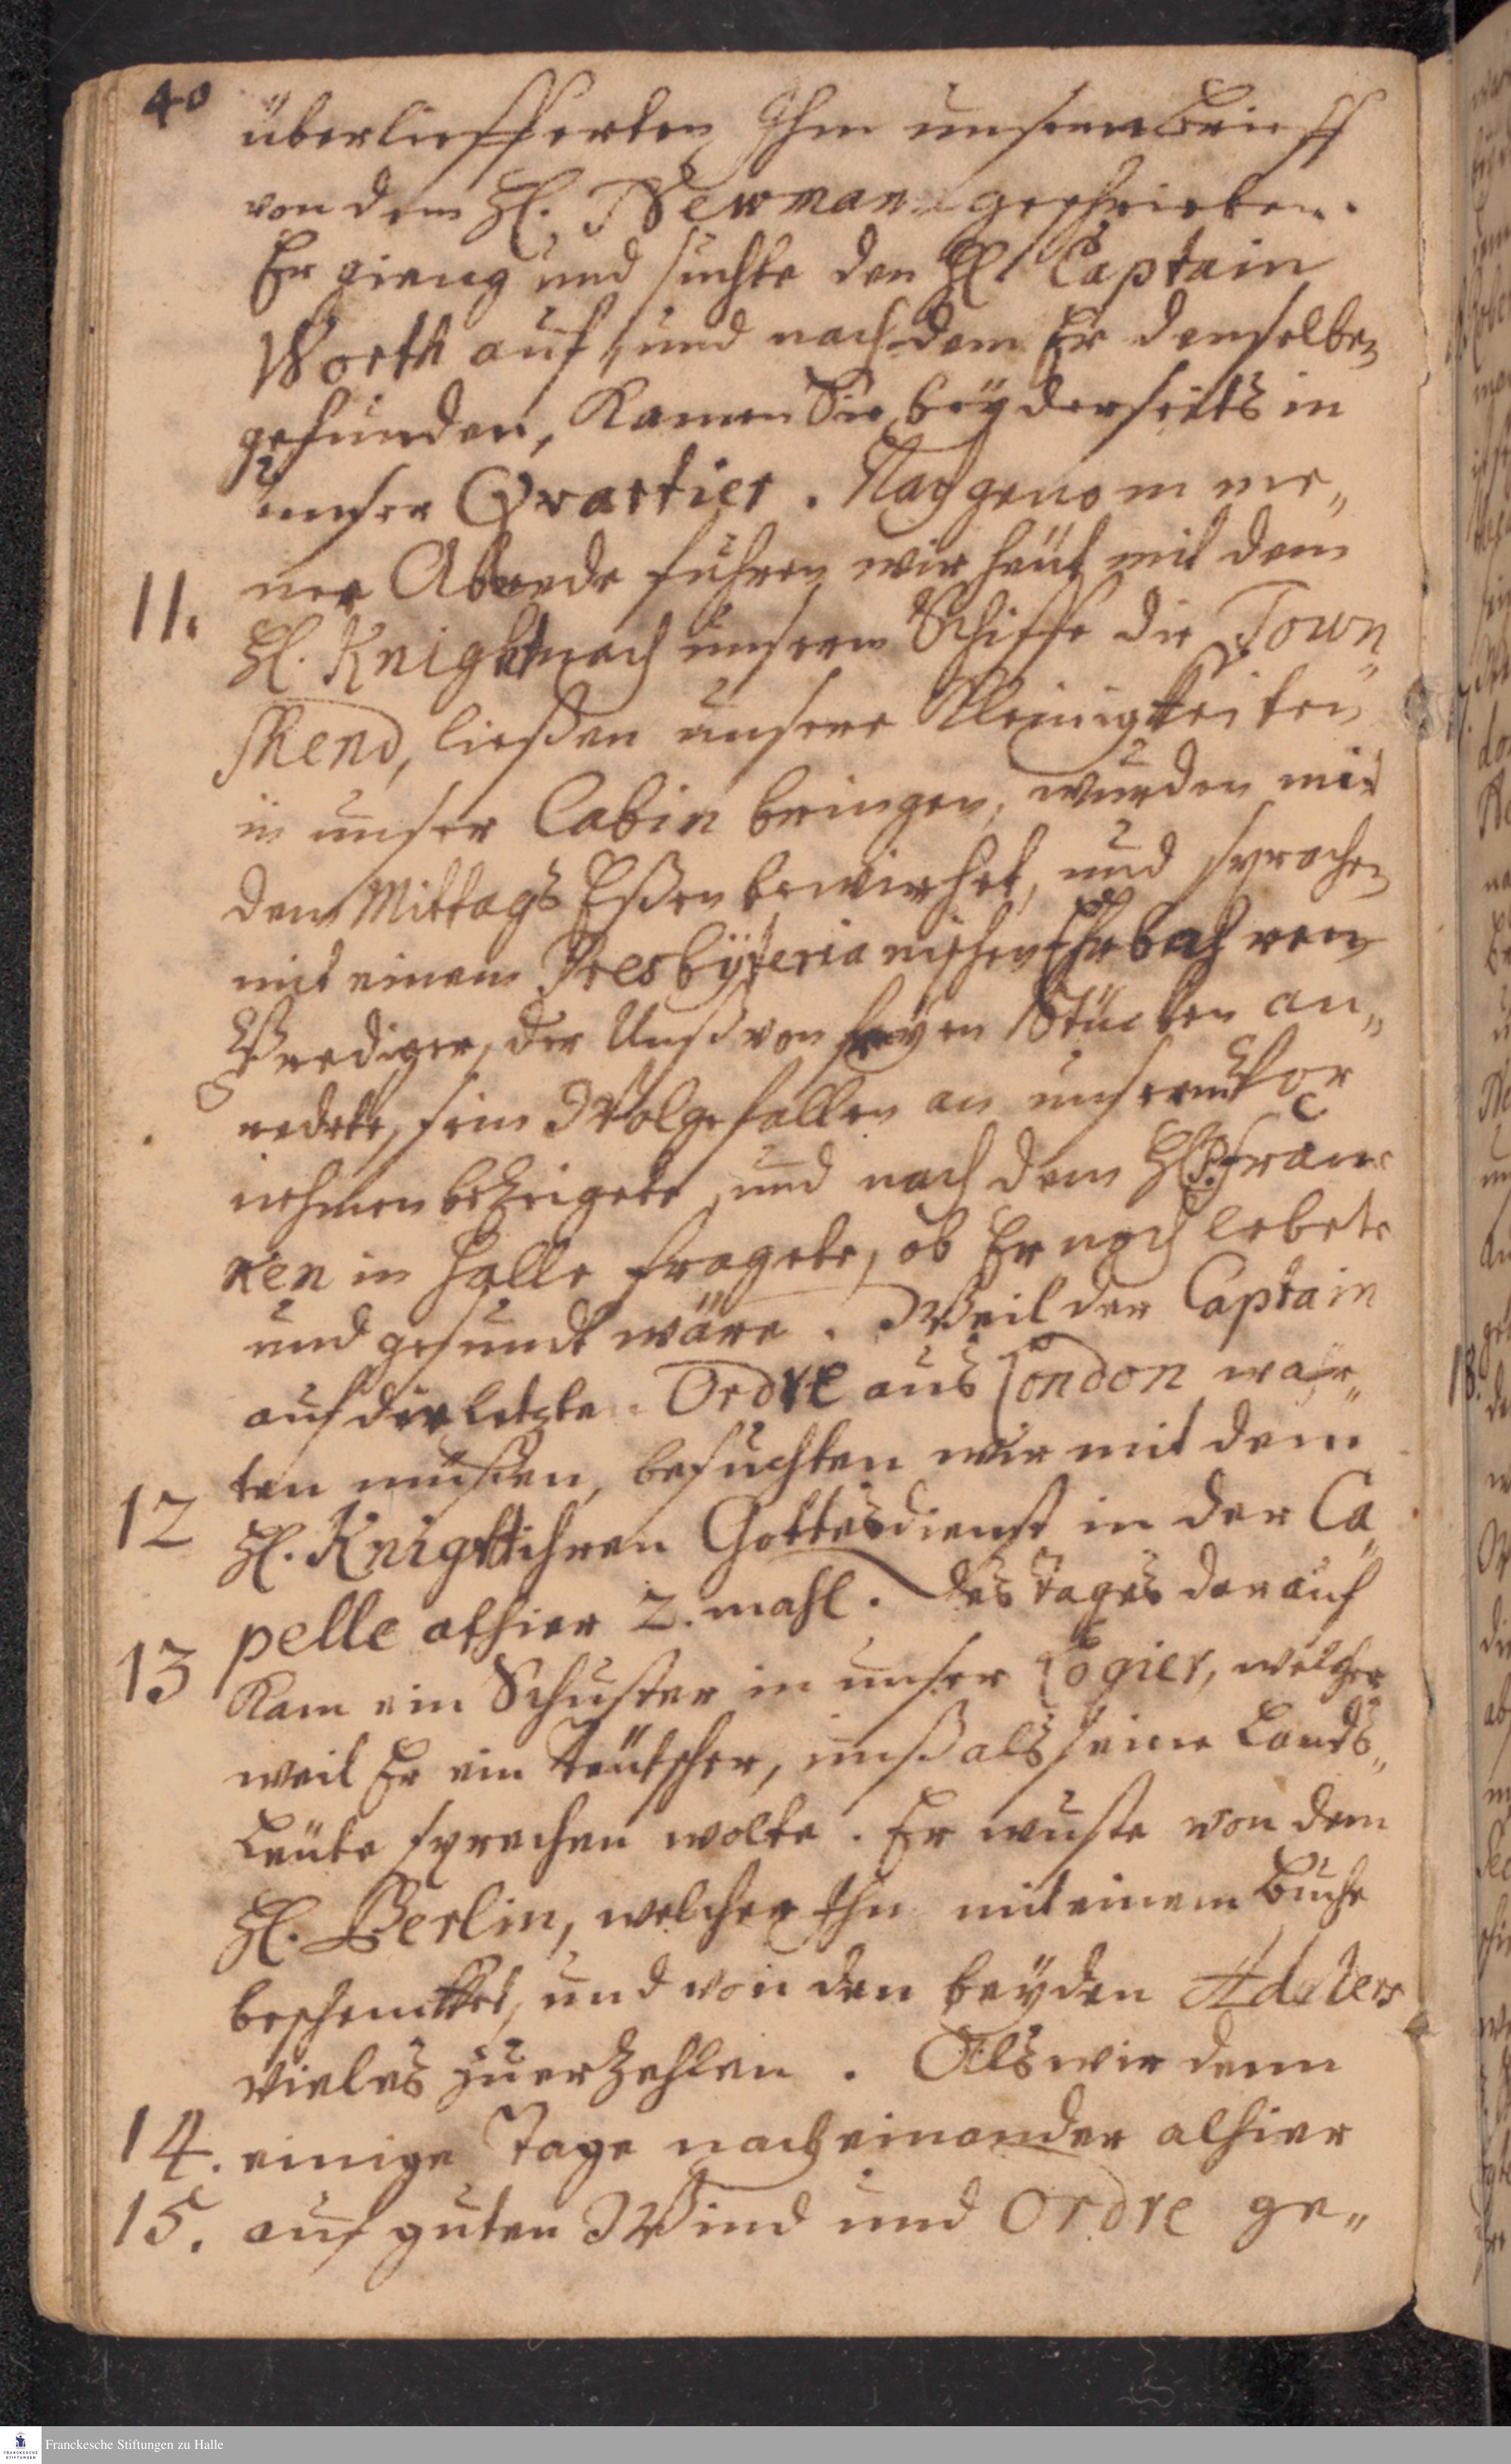 40
überliefferten Ihm unsern Brieff
von dem H. Newman geschrieben.
Er gieng und suchte den H. Captain
Worth auf, und nach dem Er denselben
gefunden, kamen Sie beyderseits in
unser Qvartier. Nach genomme„
11. ner Abrede fuhren wir heüt mit dem
H. Knight nach unserm Schiffe die Town„
shend, ließen unsere Kleinigkeiten
in unser Cabin bringen, wurden mit
dem Mittags Eßen bewirhet, und sprachen
mit einem Presbyterianischen Ehrbahren
Prediger, der Unß von freyen Stücken an„
redete, sein Wolgefallen an unserm Vor
nehmen bezeigete, und nach dem H. P. Franc
ken in Halle fragete, ob Er noch lebete
und gesundt wäre. Weil der Captain
auf die letzte Ordre aus London war„
ten müßen, besuchten wir mit dem
12 H. Knight ihren Gottesdienst in der Ca„
pelle alhier 2. mahl. Des Tages darauf
13 kam ein Schuster in unser Logier, welcher
weil Er ein Teütscher, unß als seine Lands„
Leüte sprechen wolte. Er wuste von dem
H. Berlin, welcher Ihn mit einem Buche
beschencket, und von den beyden Adlers
vieles zu erzehlen. Als wir denn
14. einige Tage nach einander alhier
15. auf guten Wind und Ordre ge„
Franckesche Stiftungen zu Halle